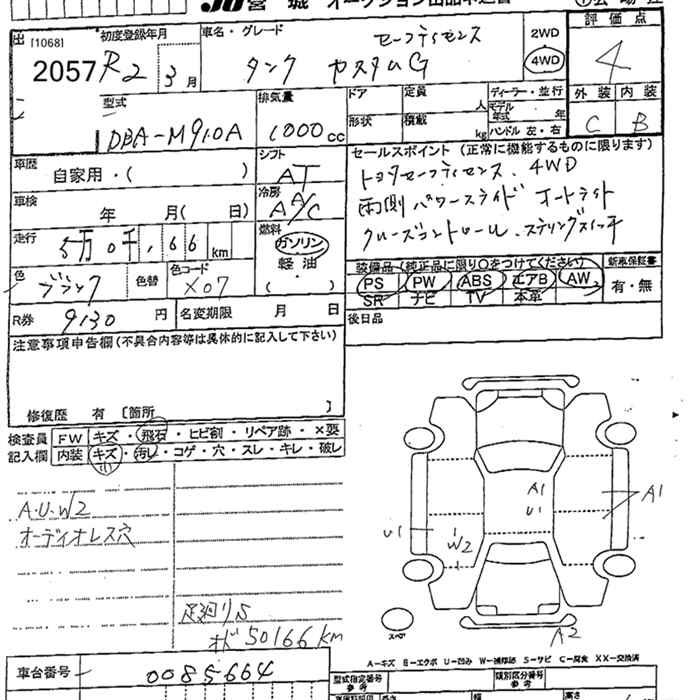 JU 宮城 オークション出品申込書
出 [1068] 2057
初度登録年月 R2 3月
車名・グレード セーフティセンス
タンク カスタムG
2WD
4WD
評価点 4
外装 内装
C B
型式 DBA-M910A
排気量 1000cc
ドア 定員 人
形状 積載 kg
ディーラー・並行
モデル年式 年
ハンドル 左・右
車歴 自家用・( )
シフト AT
セールスポイント (正常に機能するものに限ります)
トヨタセーフティセンス、4WD
両側パワースライド オートライト
クルーズコントロール、ステリングスイッチ
車検 年 月( 日)
冷房 AA/C
走行 5万0千,166km
燃料 ガソリン
軽油
( )
色 ブラック 色替
色コード X07
装備品(純正品に限り○をつけてください) 新車保証書
PS PW ABS エアB AW 有・無
SR ナビ TV 本革
R券 9130円 名変期限 月 日
後日品
注意事項申告欄(不具合内容等は具体的に記入して下さい)
修復歴 有 〔箇所 〕
検査員 FW キズ・飛石・ヒビ割・リペア跡・×要
記入欄 内装 キズ・汚し・コゲ・穴・スレ・キレ・破レ
A.U.W2
オーディオレス穴
足廻りS
オド 50166km
A1
U1
A1
U1
W2
A2
スペア
A-キズ B-エクボ U-凹み W-補修跡 S-サビ C-腐食 XX-交換済
車台番号 0085664
型式指定番号 参考
類別区分番号 参考
長さ
幅
高さ